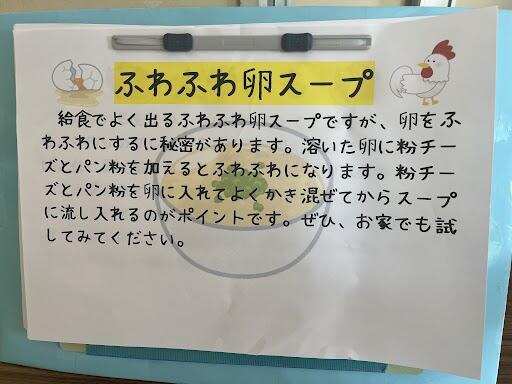 ふわふわ卵スープ
給食でよく出るふわふわ卵スープですが、卵をふ
わふわにするに秘密があります。溶いた卵に粉チー
ズとパン粉を加えるとふわふわになります。粉チー
ズとパン粉を卵に入れてよくかき混ぜてからスープ
に流し入れるのがポイントです。ぜひ、お家でも試
してみてください。